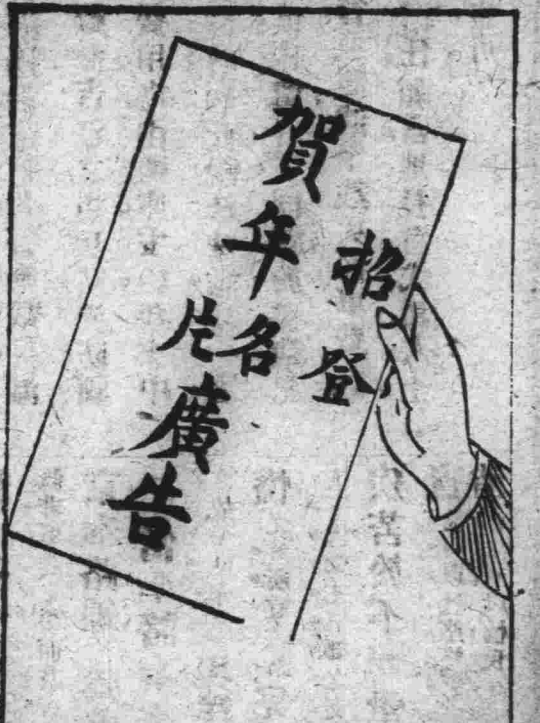 招登
賀年名片廣告